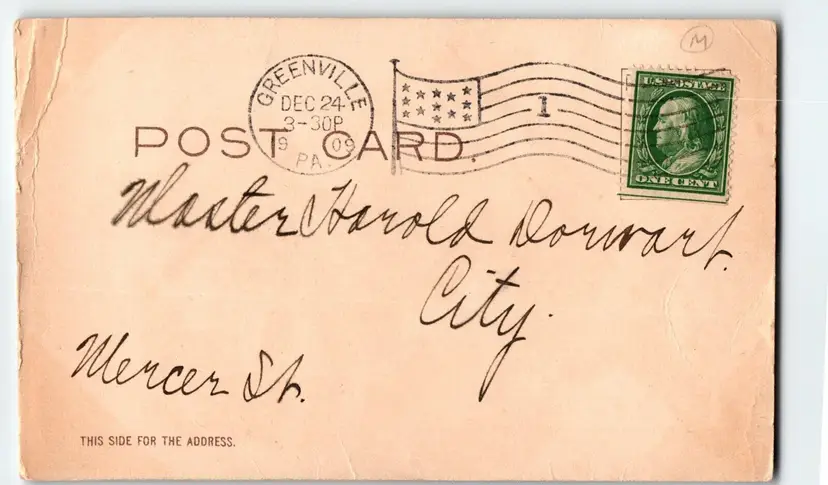 M
GREENVILLE
DEC 24
3-30P
9 09
PA.
1
U.S. POSTAGE
ONE CENT
POST CARD.
Master Harold Dorwart.
City.
Mercer St.
THIS SIDE FOR THE ADDRESS.